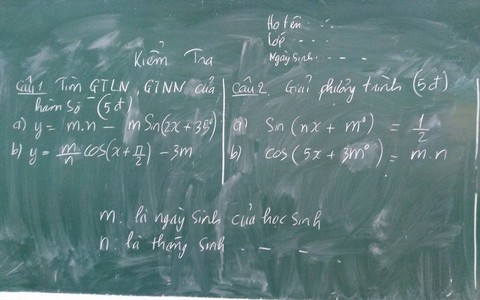 Họ tên: . . .
Lớp: . . .
Ngày sinh: - - -
Kiểm Tra
Câu 1 Tìm GTLN, GTNN của
hàm số (5đ)
a) y = m.n - m Sin(2x + 35°)
b) y = m/n cos(x + π/2) - 3m
Câu 2. Giải phương trình (5đ)
a) Sin (nx + m°) = 1/2
b) cos (5x + 3m°) = m.n
m. là ngày sinh của học sinh
n. là tháng sinh . - - -